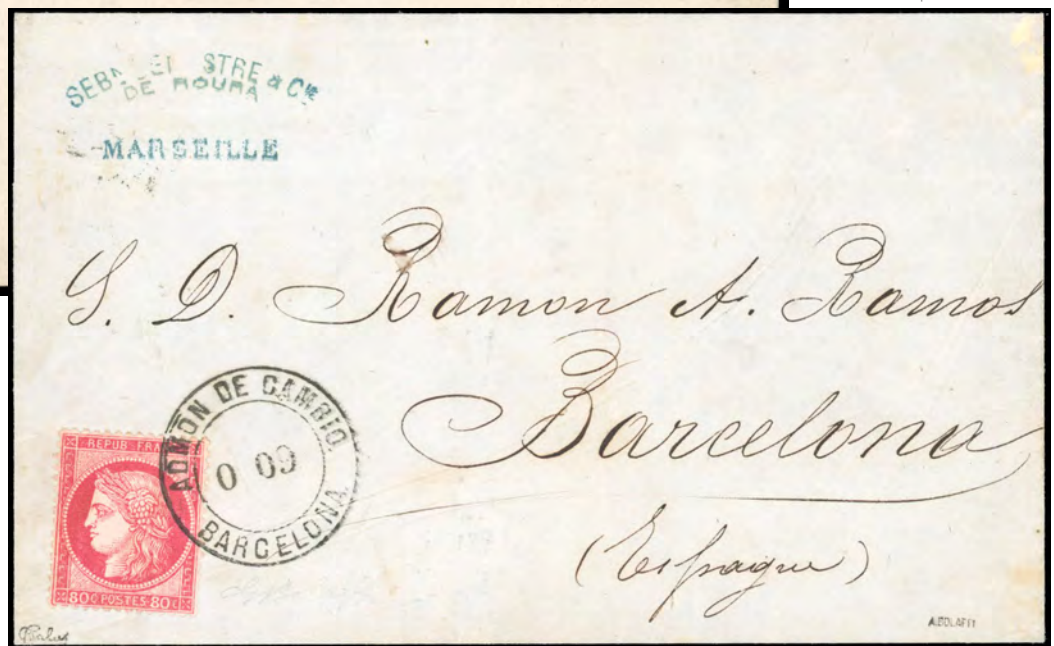 & Cie
DE ROURA
MARSEILLE
S. D. Ramon A. Ramos
Barcelona
(Espagne)
ADMON DE CAMBIO.
0 09
BARCELONA
REPUB FRA
80 C POSTES 80 C
A.BOLAFFI